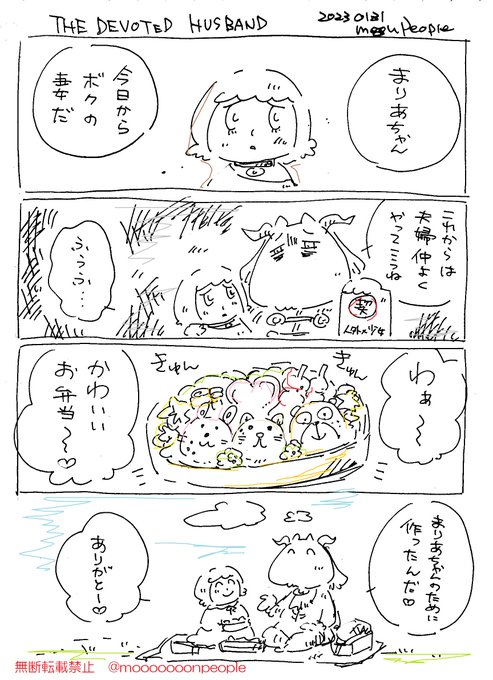 THE DEVOTED HUSBAND
2023 01 31
まりあちゃん
今日から
ボクの
妻だ
これからは
夫婦仲よく
やってこうね
ふうふ…
契
わぁ〜
きゅん
きゅん
かわいい
お弁当〜♡
まりあちゃんのために
作ったんだ♡
ありがとー♡
無断転載禁止 @mooooooonpeople